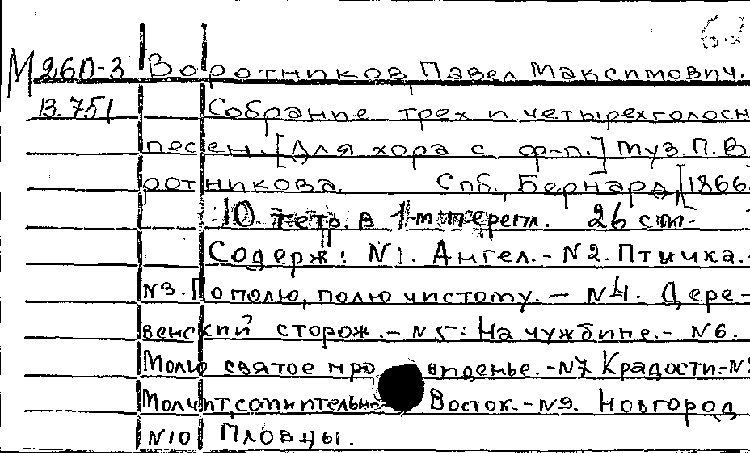 М 26П-3 Воротников, Павел Максимович.
В.751 Собрание трех и четырехголосн
песен. [Для хора с ф-п.] Муз. П. В
ротникова. Спб, Бернард, [1866
10 тетр. в 1 26 см.
Содерж: N1. Ангел.- N2. Птичка.-
N3. По полю, полю чистому. - N4. Дере-
венский сторож.- N5: На чужбине.- N6.
Молю святое про виденье.-N7 Крадости-N
Молчит сомнительно Восток.-N9. Новгород
N10 Пловцы.